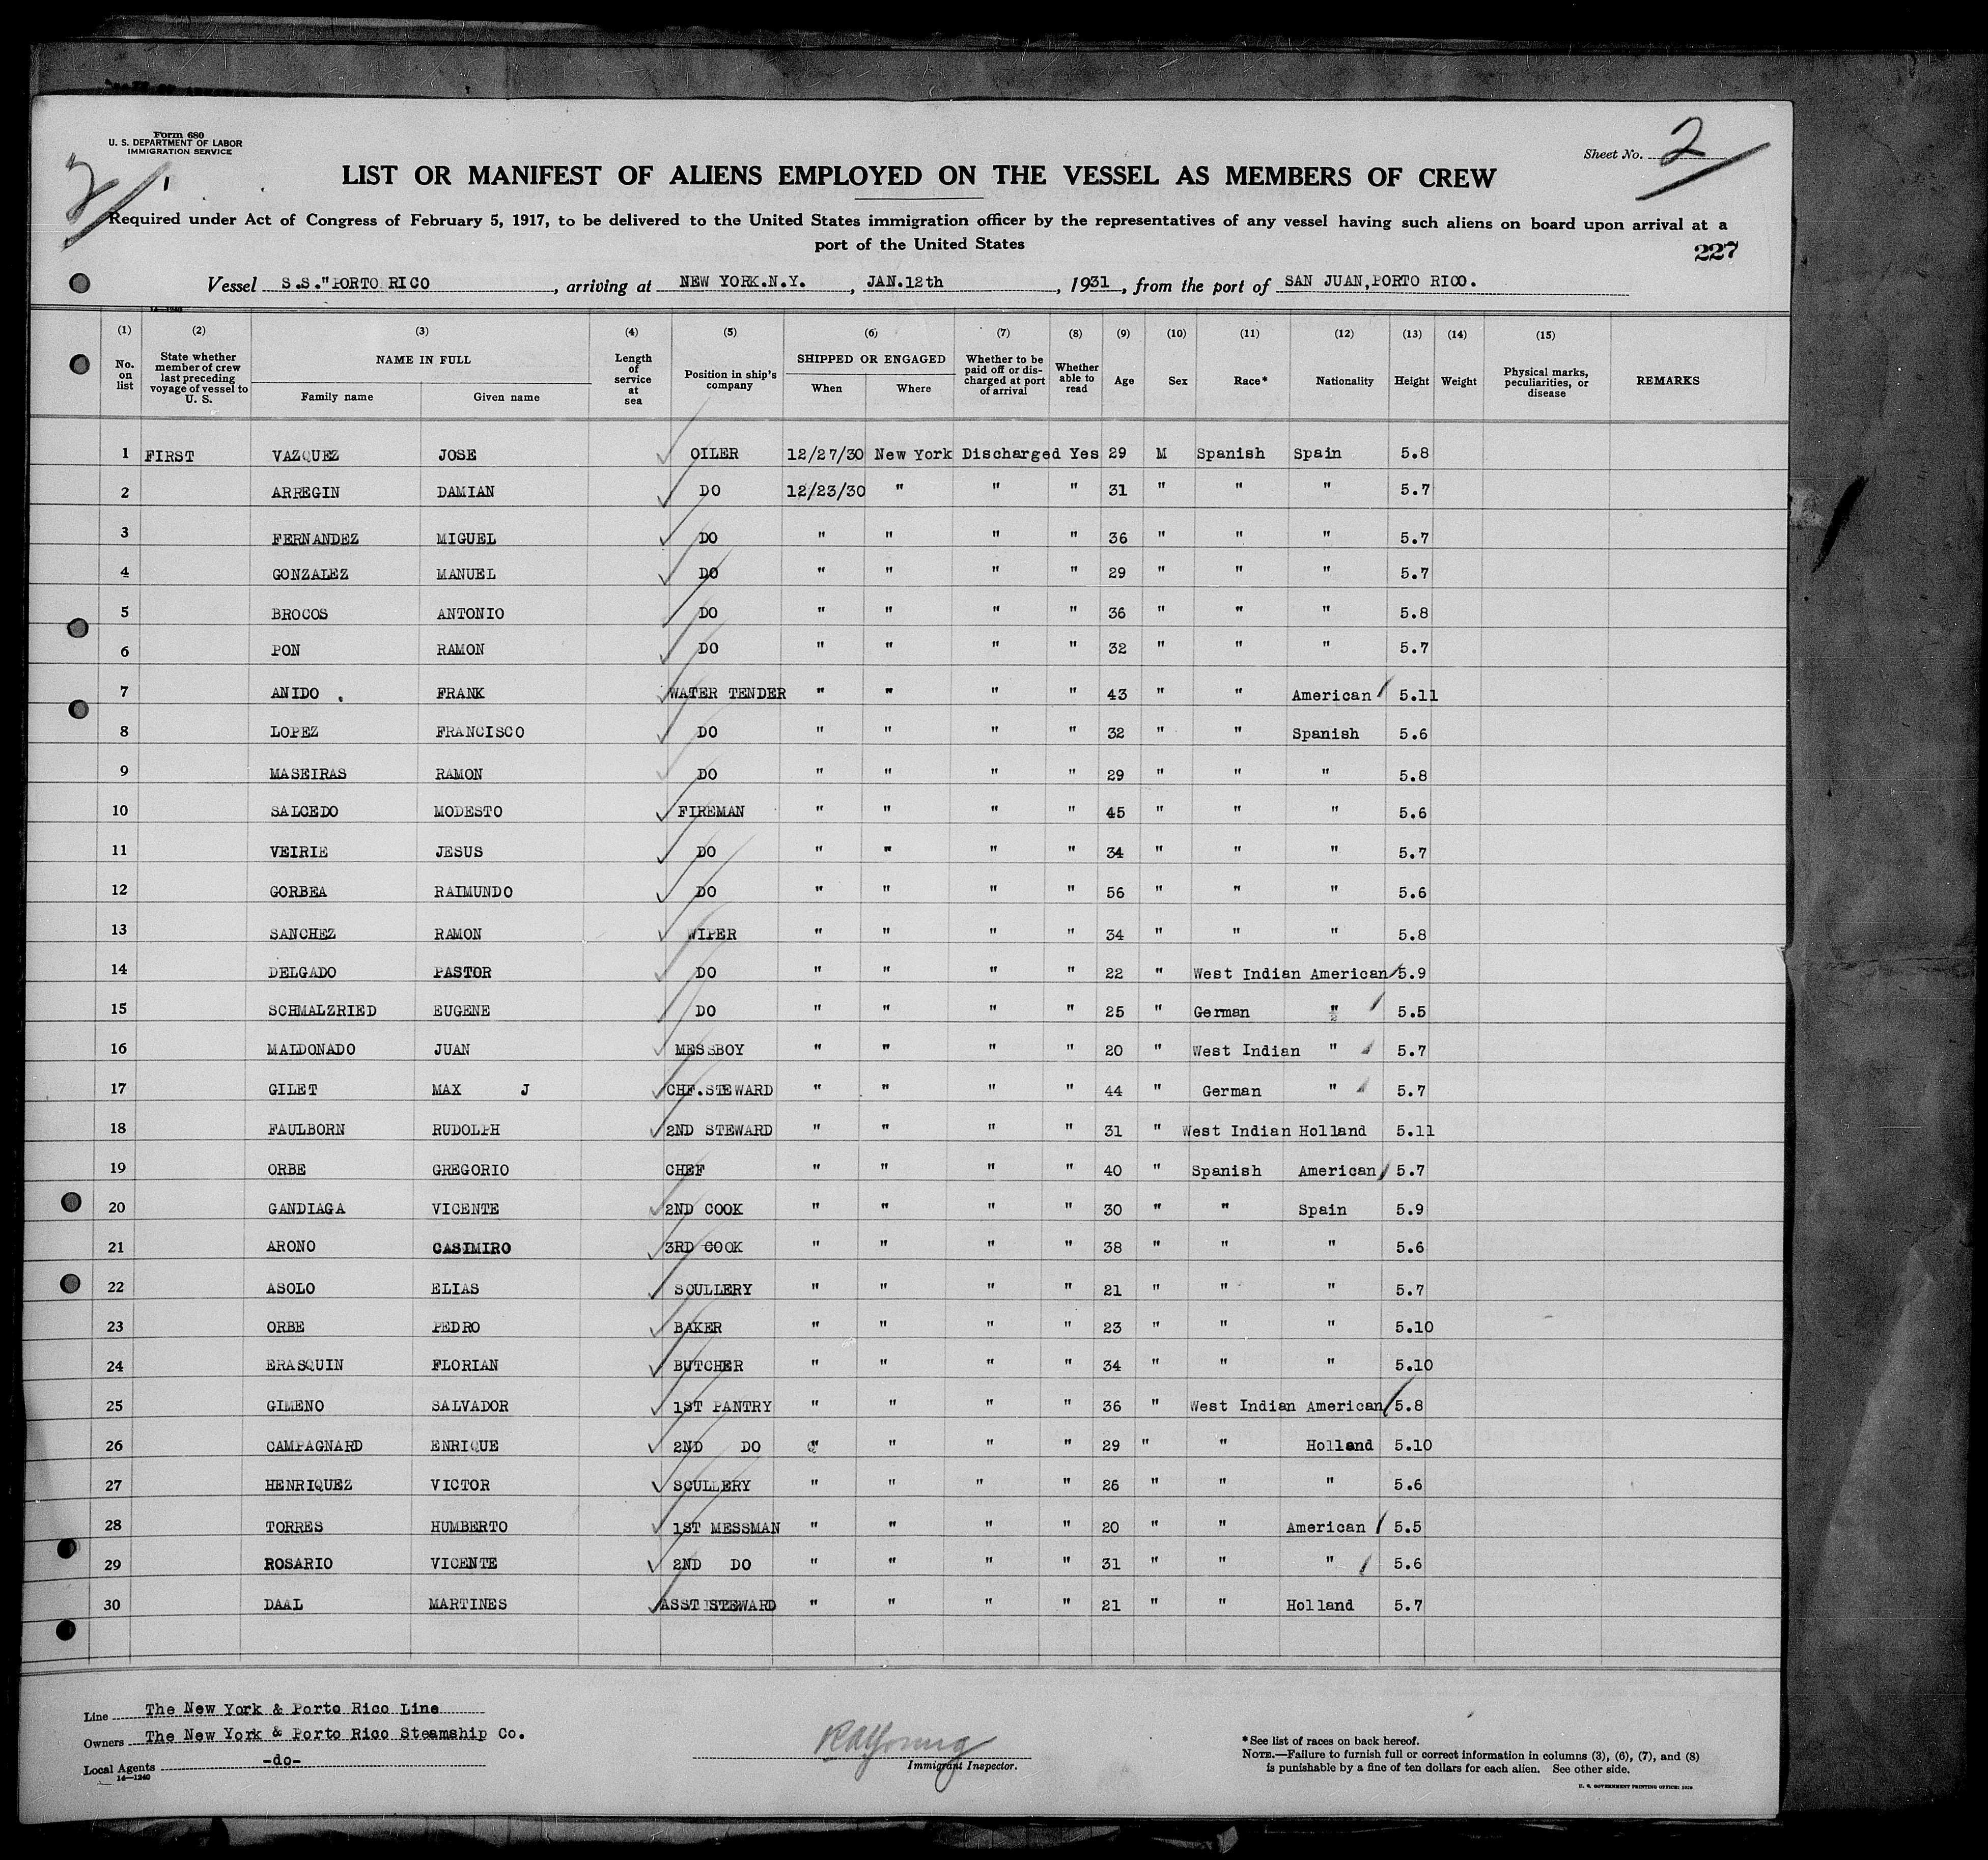 Form 680
U. S. DEPARTMENT OF LABOR
IMMIGRATION SERVICE
2 1
Sheet No. 2
LIST OR MANIFEST OF ALIENS EMPLOYED ON THE VESSEL AS MEMBERS OF CREW
Required under Act of Congress of February 5, 1917, to be delivered to the United States immigration officer by the representatives of any vessel having such aliens on board upon arrival at a
port of the United States
227
Vessel S.S."PORTO RICO, arriving at NEW YORK.N.Y., JAN.12th, 1931, from the port of SAN JUAN,PORTO RICO.
14—1240
(1) (2) (3) (4) (5) (6) (7) (8) (9) (10) (11) (12) (13) (14) (15)
No. on list State whether member of crew last preceding voyage of vessel to U. S. NAME IN FULL Family name Given name Length of service at sea Position in ship's company SHIPPED OR ENGAGED When Where Whether to be paid off or discharged at port of arrival Whether able to read Age Sex Race* Nationality Height Weight Physical marks, peculiarities, or disease REMARKS
1 FIRST VAZQUEZ JOSE OILER 12/27/30 New York Discharged Yes 29 M Spanish Spain 5.8
2 ARREGIN DAMIAN DO 12/23/30 " " " 31 " " " 5.7
3 FERNANDEZ MIGUEL DO " " " " 36 " " " 5.7
4 GONZALEZ MANUEL DO " " " " 29 " " " 5.7
5 BROCOS ANTONIO DO " " " " 36 " " " 5.8
6 PON RAMON DO " " " " 32 " " " 5.7
7 ANIDO . FRANK WATER TENDER " " " " 43 " " American 5.11
8 LOPEZ FRANCISCO DO " " " " 32 " " Spanish 5.6
9 MASEIRAS RAMON DO " " " " 29 " " " 5.8
10 SALCEDO MODESTO FIREMAN " " " " 45 " " " 5.6
11 VEIRIE JESUS DO " " " " 34 " " " 5.7
12 GORBEA RAIMUNDO DO " " " " 56 " " " 5.6
13 SANCHEZ RAMON WIPER " " " " 34 " " " 5.8
14 DELGADO PASTOR DO " " " " 22 " West Indian American 5.9
15 SCHMALZRIED EUGENE DO " " " " 25 " German " 5.5
16 MALDONADO JUAN MESSBOY " " " " 20 " West Indian " 5.7
17 GILET MAX J CHF.STEWARD " " " " 44 " German " 5.7
18 FAULBORN RUDOLPH 2ND STEWARD " " " " 31 " West Indian Holland 5.11
19 ORBE GREGORIO CHEF " " " " 40 " Spanish American 5.7
20 GANDIAGA VICENTE 2ND COOK " " " " 30 " " Spain 5.9
21 ARONO CASIMIRO 3RD COOK " " " " 38 " " " 5.6
22 ASOLO ELIAS SCULLERY " " " " 21 " " " 5.7
23 ORBE PEDRO BAKER " " " " 23 " " " 5.10
24 ERASQUIN FLORIAN BUTCHER " " " " 34 " " " 5.10
25 GIMENO SALVADOR 1ST PANTRY " " " " 36 " West Indian American 5.8
26 CAMPAGNARD ENRIQUE 2ND DO " " " " 29 " " Holland 5.10
27 HENRIQUEZ VICTOR SCULLERY " " " " 26 " " " 5.6
28 TORRES HUMBERTO 1ST MESSMAN " " " " 20 " " American 5.5
29 ROSARIO VICENTE 2ND DO " " " " 31 " " " 5.6
30 DAAL MARTINES ASST STEWARD " " " " 21 " " Holland 5.7
Line The New York & Porto Rico Line
Owners The New York & Porto Rico Steamship Co.
Local Agents -do-
14—1240
RAYoung
Immigrant Inspector.
*See list of races on back hereof.
NOTE.—Failure to furnish full or correct information in columns (3), (6), (7), and (8)
is punishable by a fine of ten dollars for each alien. See other side.
U. S. GOVERNMENT PRINTING OFFICE: 1929